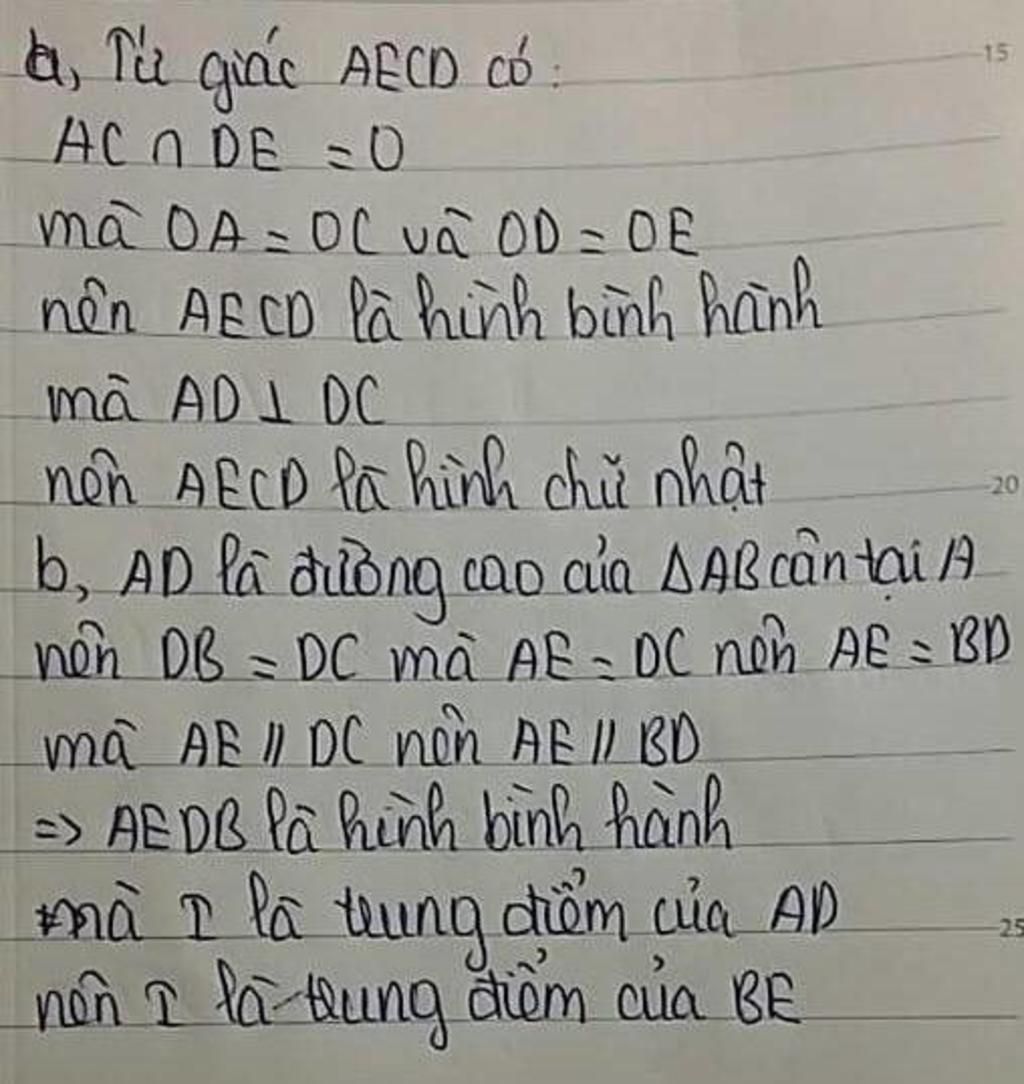 a, Tứ giác AECD có:
15
AC ∩ DE = O
mà OA = OC và OD = OE
nên AECD là hình bình hành
mà AD ⊥ DC
nên AECD là hình chữ nhật
20
b, AD là đường cao của ΔAB cân tại A
nên DB = DC mà AE = DC nên AE = BD
mà AE // DC nên AE // BD
=> AEDB là hình bình hành
mà I là trung điểm của AD
25
nên I là trung điểm của BE